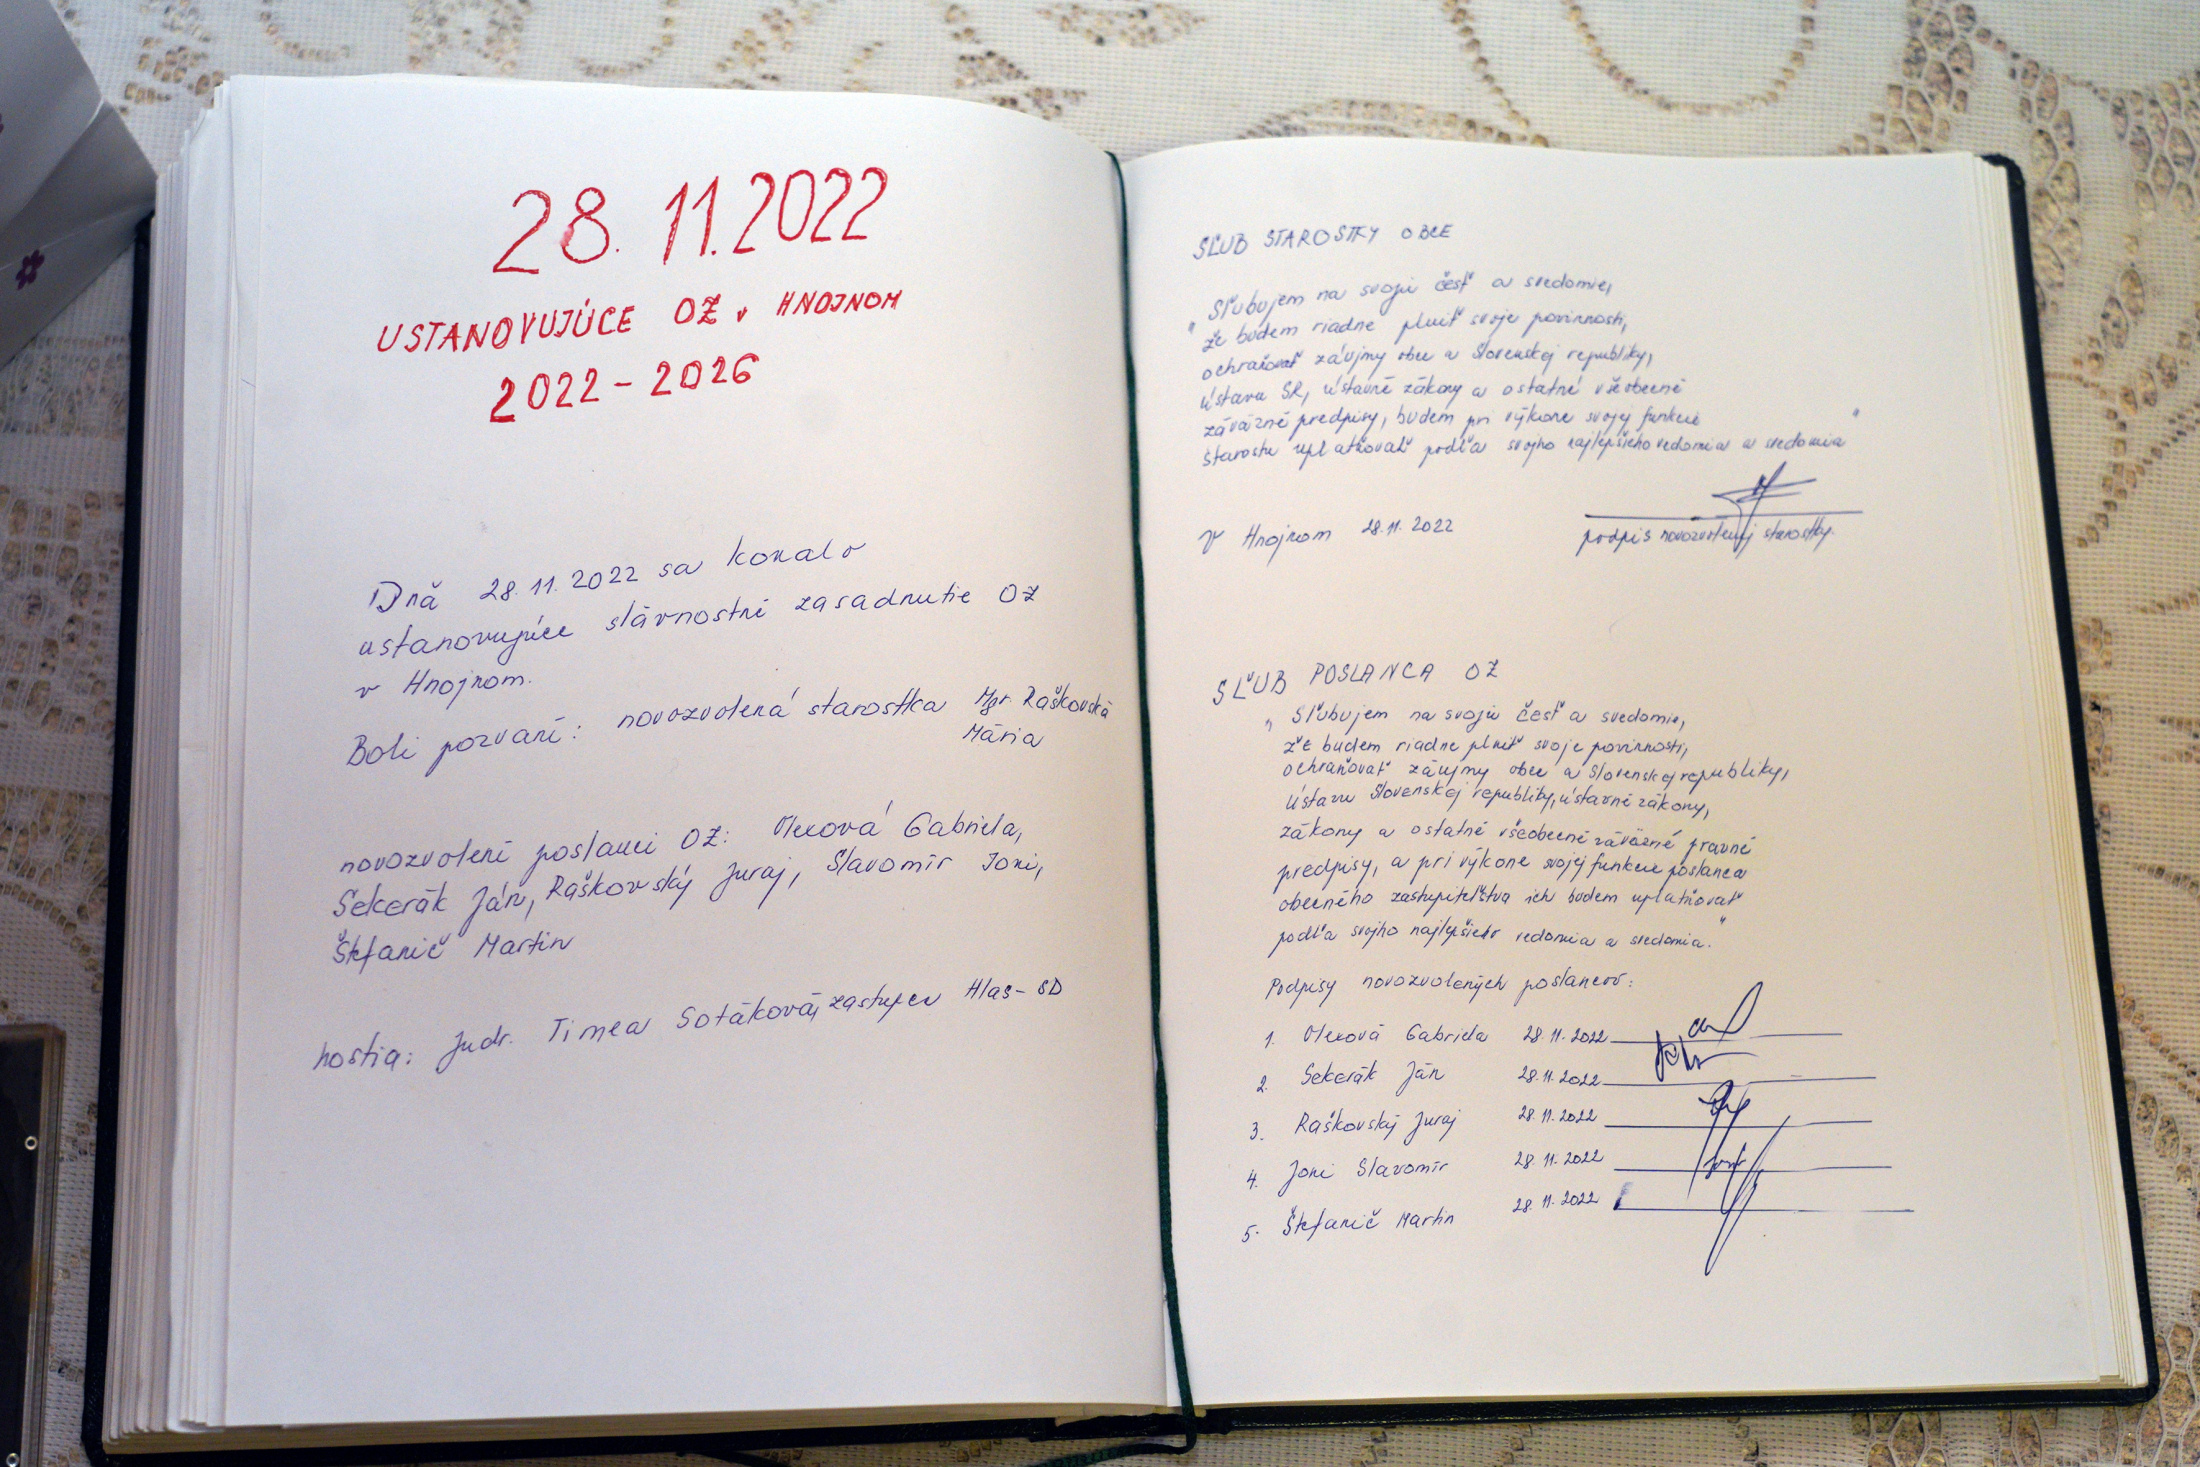 28. 11. 2022
USTANOVUJÚCE OZ v HNOJNOM
2022 - 2026
Dňa 28. 11. 2022 sa konalo
ustanovujúce slávnostné zasadnutie OZ
v Hnojnom.
Boli pozvaní: novozvolená starostka Mgr. Raškovská
Mária
novozvolení poslanci OZ: Olexová Gabriela,
Sekerák Ján, Raškovský Juraj, Slavomír Joni,
Štefanič Martin
hostia: Judr. Timea Sotáková, zástupca Hlas-SD
SĽUB STAROSTKY OBCE
"Sľubujem na svoju česť a svedomie,
že budem riadne plniť svoje povinnosti,
ochraňovať záujmy obce a Slovenskej republiky,
ústavu SR, ústavné zákony a ostatné všeobecné
záväzné predpisy, budem pri výkone svojej funkcie
starostu uplatňovať podľa svojho najlepšieho vedomia a svedomia"
V Hnojnom 28.11.2022
podpis novozvolenej starostky.
SĽUB POSLANCA OZ
"Sľubujem na svoju česť a svedomie,
že budem riadne plniť svoje povinnosti,
ochraňovať záujmy obce a Slovenskej republiky,
ústavu Slovenskej republiky, ústavné zákony,
zákony a ostatné všeobecné záväzné pravné
predpisy, a pri výkone svojej funkcie poslanca
obecného zastupiteľstva ich budem uplatňovať
podľa svojho najlepšieho vedomia a svedomia."
Podpisy novozvolených poslancov:
1. Olexová Gabriela 28.11.2022
2. Sekerák Ján 28.11.2022
3. Raškovský Juraj 28.11.2022
4. Joni Slavomír 28.11.2022
5. Štefanič Martin 28.11.2022